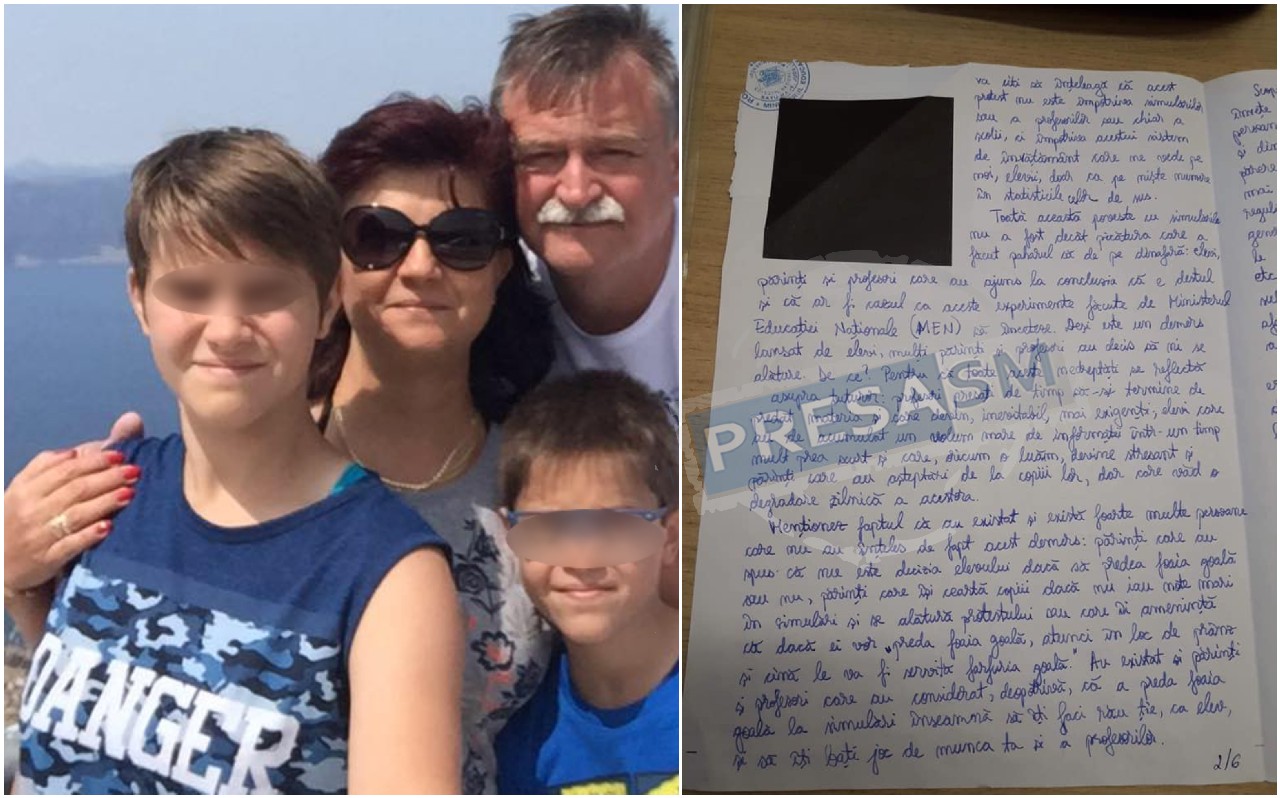 DANGER
va citi să înțeleagă că acest
protest nu este împotriva simulărilor
sau a profesorilor sau chiar a
școlii, ci împotriva acestui sistem
de învățământ care ne vede pe
noi, elevii, doar ca pe niște numere
în statisticile celor de sus.
Toată această poveste cu simulările
nu a fost decât picătura care a
făcut paharul să dea pe dinafară: elevi,
părinți și profesori care au ajuns la concluzia că e destul
și că ar fi cazul ca aceste experimente făcute de Ministerul
Educației Naționale (MEN) să înceteze. Deși este un demers
lansat de elevi, mulți părinți și profesori au decis să ni se
alăture. De ce? Pentru că toate aceste nedreptăți se reflectă
asupra tuturor: profesori presați de timp să-și termine de
predat materia și care devin, inevitabil, mai exigenți, elevi care
au de acumulat un volum mare de informații într-un timp
mult prea scurt și care, oricum o luăm, devine stresant și
părinți care au așteptări de la copiii lor, dar care văd o
degradare zilnică a acestora.
Menționez faptul că au existat și există foarte multe persoane
care nu au înțeles de fapt acest demers: părinți care au
spus că nu este decizia elevului dacă să predea foaia goală
sau nu, părinți care își ceartă copiii dacă nu iau note mari
în simulări și se alătură protestului sau care îi amenință
că dacă ei vor „preda foaia goală, atunci în loc de prânz
și cină le va fi servită farfuria goală." Au existat și părinți
și profesori care au considerat, deopotrivă, că a preda foaia
goală la simulări înseamnă să îți faci rău ție, ca elev,
și să îți bați joc de munca ta și a profesorilor.
2/6
PRESASM